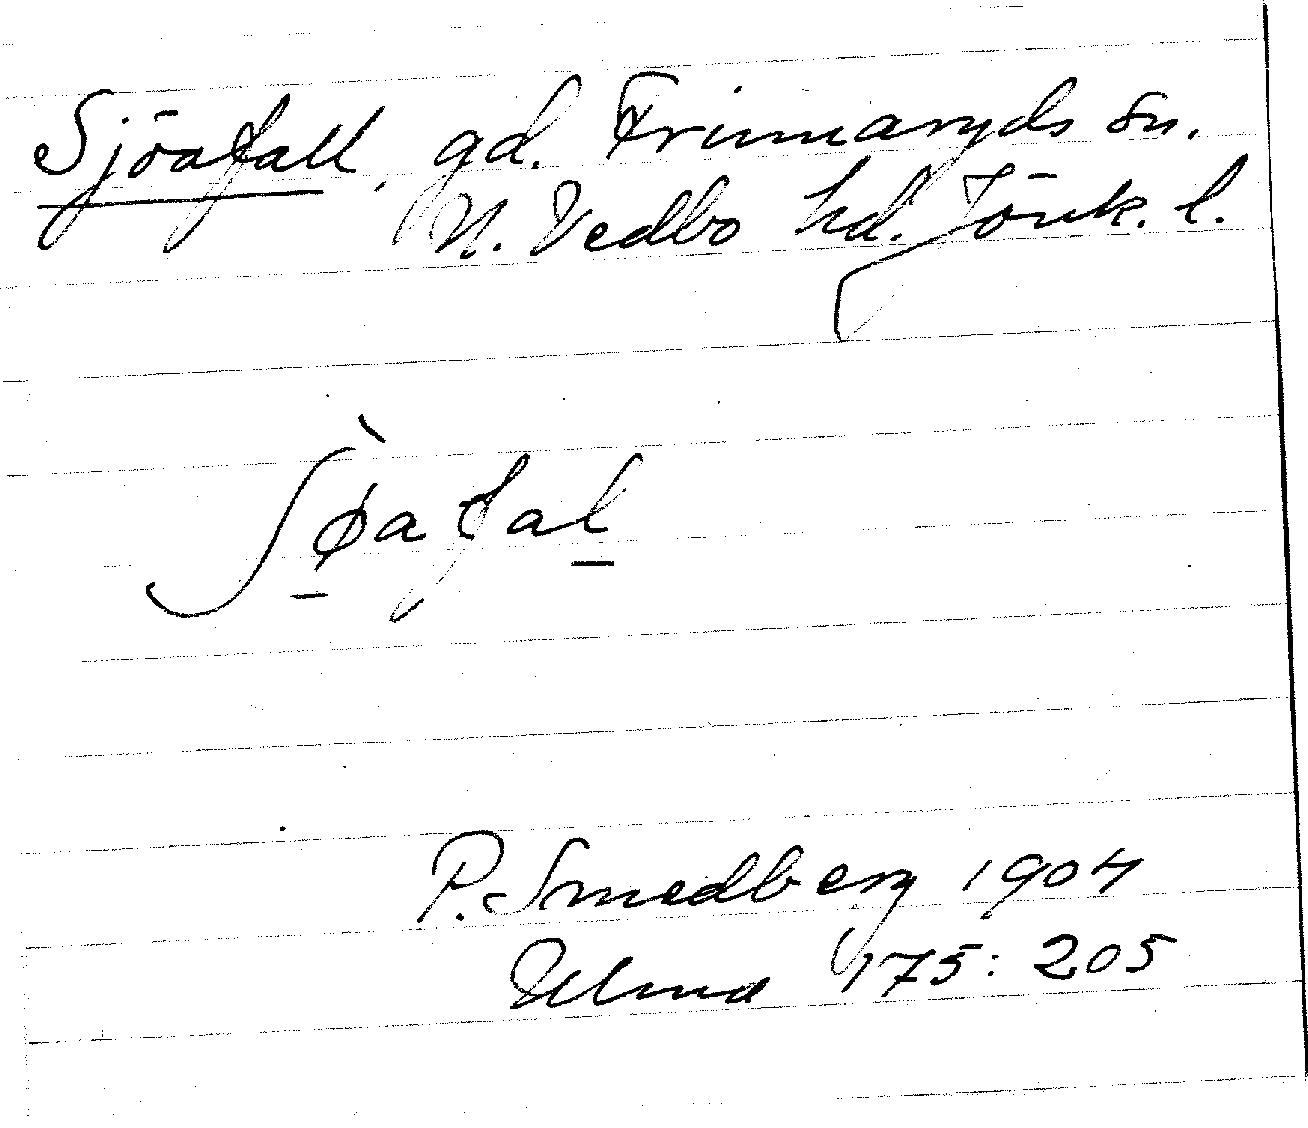 Sjöafall, gd. Frinnaryds sn.
N. Vedbo hd. Jönk. l.
ʃø̀afal
P. Smedberg 1904
Ulma 175: 205